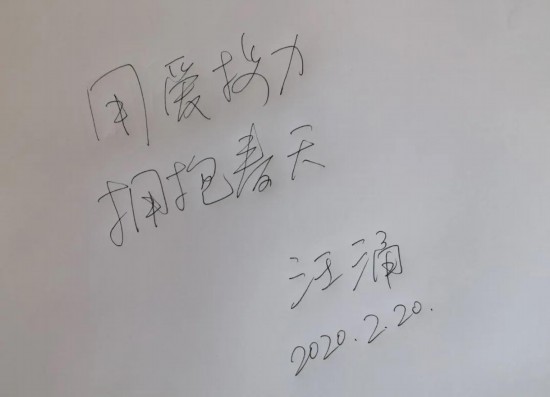 用爱接力
拥抱春天
汪涌
2020.2.20.